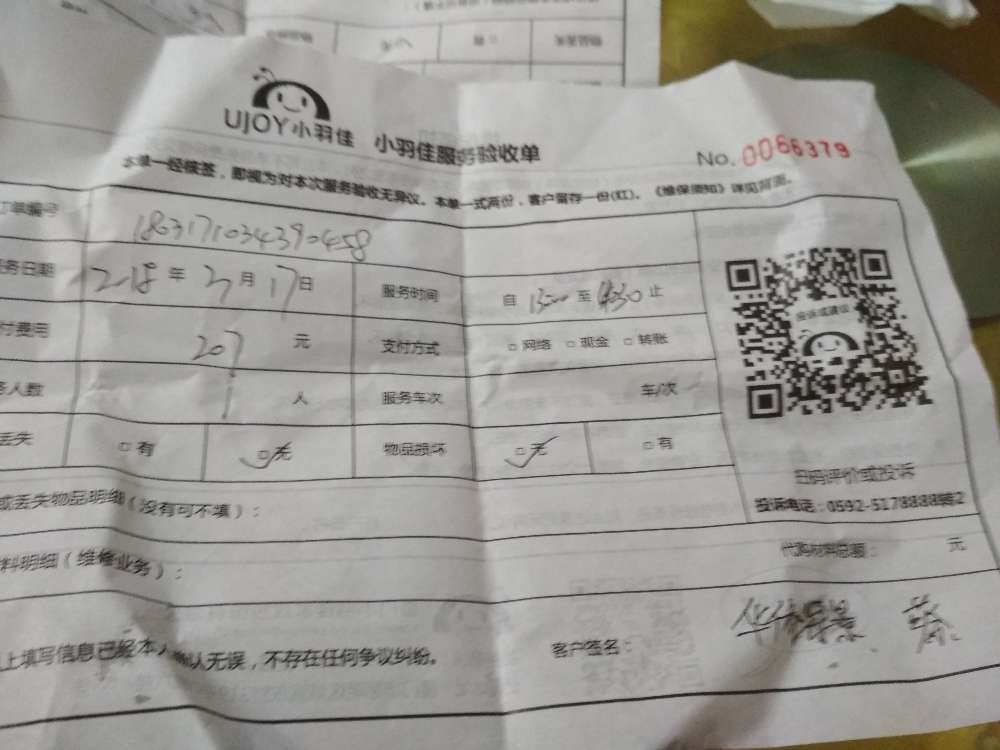 UJOY小羽佳 小羽佳服务验收单
No. 0066379
本单一经被签，即视为对本次服务验收无异议。本单一式两份，客户留存一份(红)。《维保须知》详见背面。
订单编号 1803171034390458
服务日期 2018年3月17日 服务时间 自1300至1630止
付费用 207元 支付方式 □网络 □现金 □转账
人数 1人 服务车次 车/次
丢失 □有 □无 物品损坏 □无 □有
投诉或建议
扫码评价或投诉
投诉电话：0592-5178888转2
或丢失物品明细（没有可不填）：
料明细（维修业务）： 代购材料总额： 元
上填写信息已经本人确认无误，不存在任何争议纠纷。 客户签名：